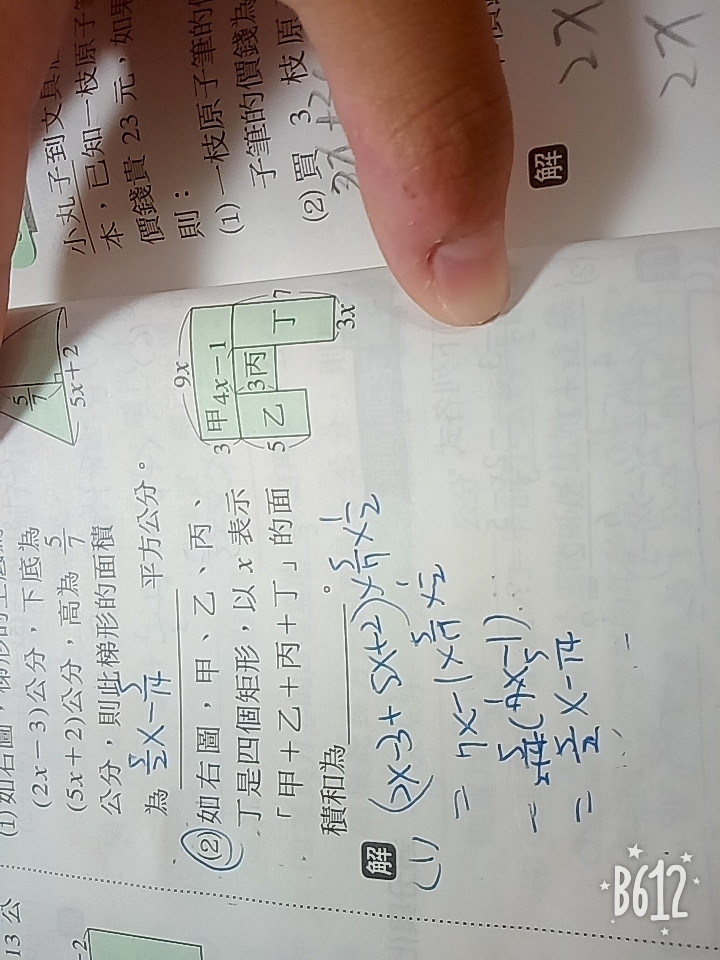 13 公
-2
(2x-3)公分，下底為
(5x+2)公分，高為 5/7
公分，則此梯形的面積
為 5/2 x - 5/14 平方公分。
5/7
5x+2
(2) 如右圖，甲、乙、丙、
丁是四個矩形，以 x 表示
「甲+乙+丙+丁」的面
積和為 。
9x
3 甲 4x-1
5 乙 3 丙 丁 7
3x
解
(1) (2x-3+5x+2)×5/7×1/2
= 7x-1×5/7×1/2
= 5/14(7x-1)
= 5/2 x - 5/14
小丸子到文具
本，已知一枝原子筆
價錢貴 23 元，如果
則：
(1) 一枝原子筆的
子筆的價錢為
(2) 買 3 枝原
解
2x
2x
B612